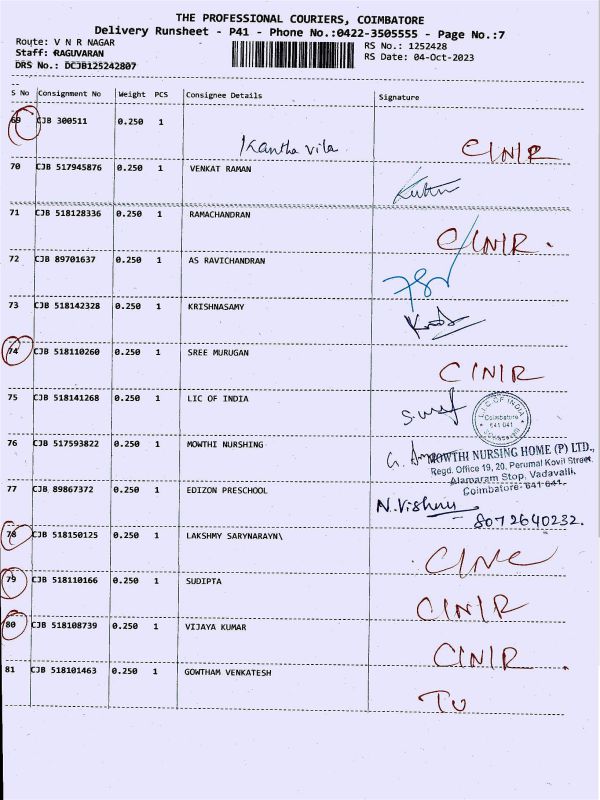 THE PROFESSIONAL COURIERS, COIMBATORE
Delivery Runsheet - P41 - Phone No.:0422-3505555 - Page No.:7
Route: V N R NAGAR RS No.: 1252428
Staff: RAGUVARAN RS Date: 04-Oct-2023
DRS No.: DCJB125242807
S No Consignment No Weight PCS Consignee Details Signature
69 CJB 300511 0.250 1
Kantha vila C/N/R
70 CJB 517945876 0.250 1 VENKAT RAMAN
71 CJB 518128336 0.250 1 RAMACHANDRAN
C/N/R.
72 CJB 89701637 0.250 1 AS RAVICHANDRAN
73 CJB 518142328 0.250 1 KRISHNASAMY
74 CJB 518110260 0.250 1 SREE MURUGAN
C/N/R
75 CJB 518141268 0.250 1 LIC OF INDIA
L.I.C. OF INDIA
Coimbatore
641 041
76 CJB 517593822 0.250 1 MOWTHI NURSHING
MOWTHI NURSING HOME (P) LTD.,
Regd. Office 19, 20, Perumal Kovil Street,
Alamaram Stop, Vadavalli,
Coimbatore- 641 041.
77 CJB 89867372 0.250 1 EDIZON PRESCHOOL
N.Vishnu
8072640232.
78 CJB 518150125 0.250 1 LAKSHMY SARYNARAYN\
C/N/C
79 CJB 518110166 0.250 1 SUDIPTA
C/N/R
80 CJB 518108739 0.250 1 VIJAYA KUMAR
C/N/R
81 CJB 518101463 0.250 1 GOWTHAM VENKATESH
TU